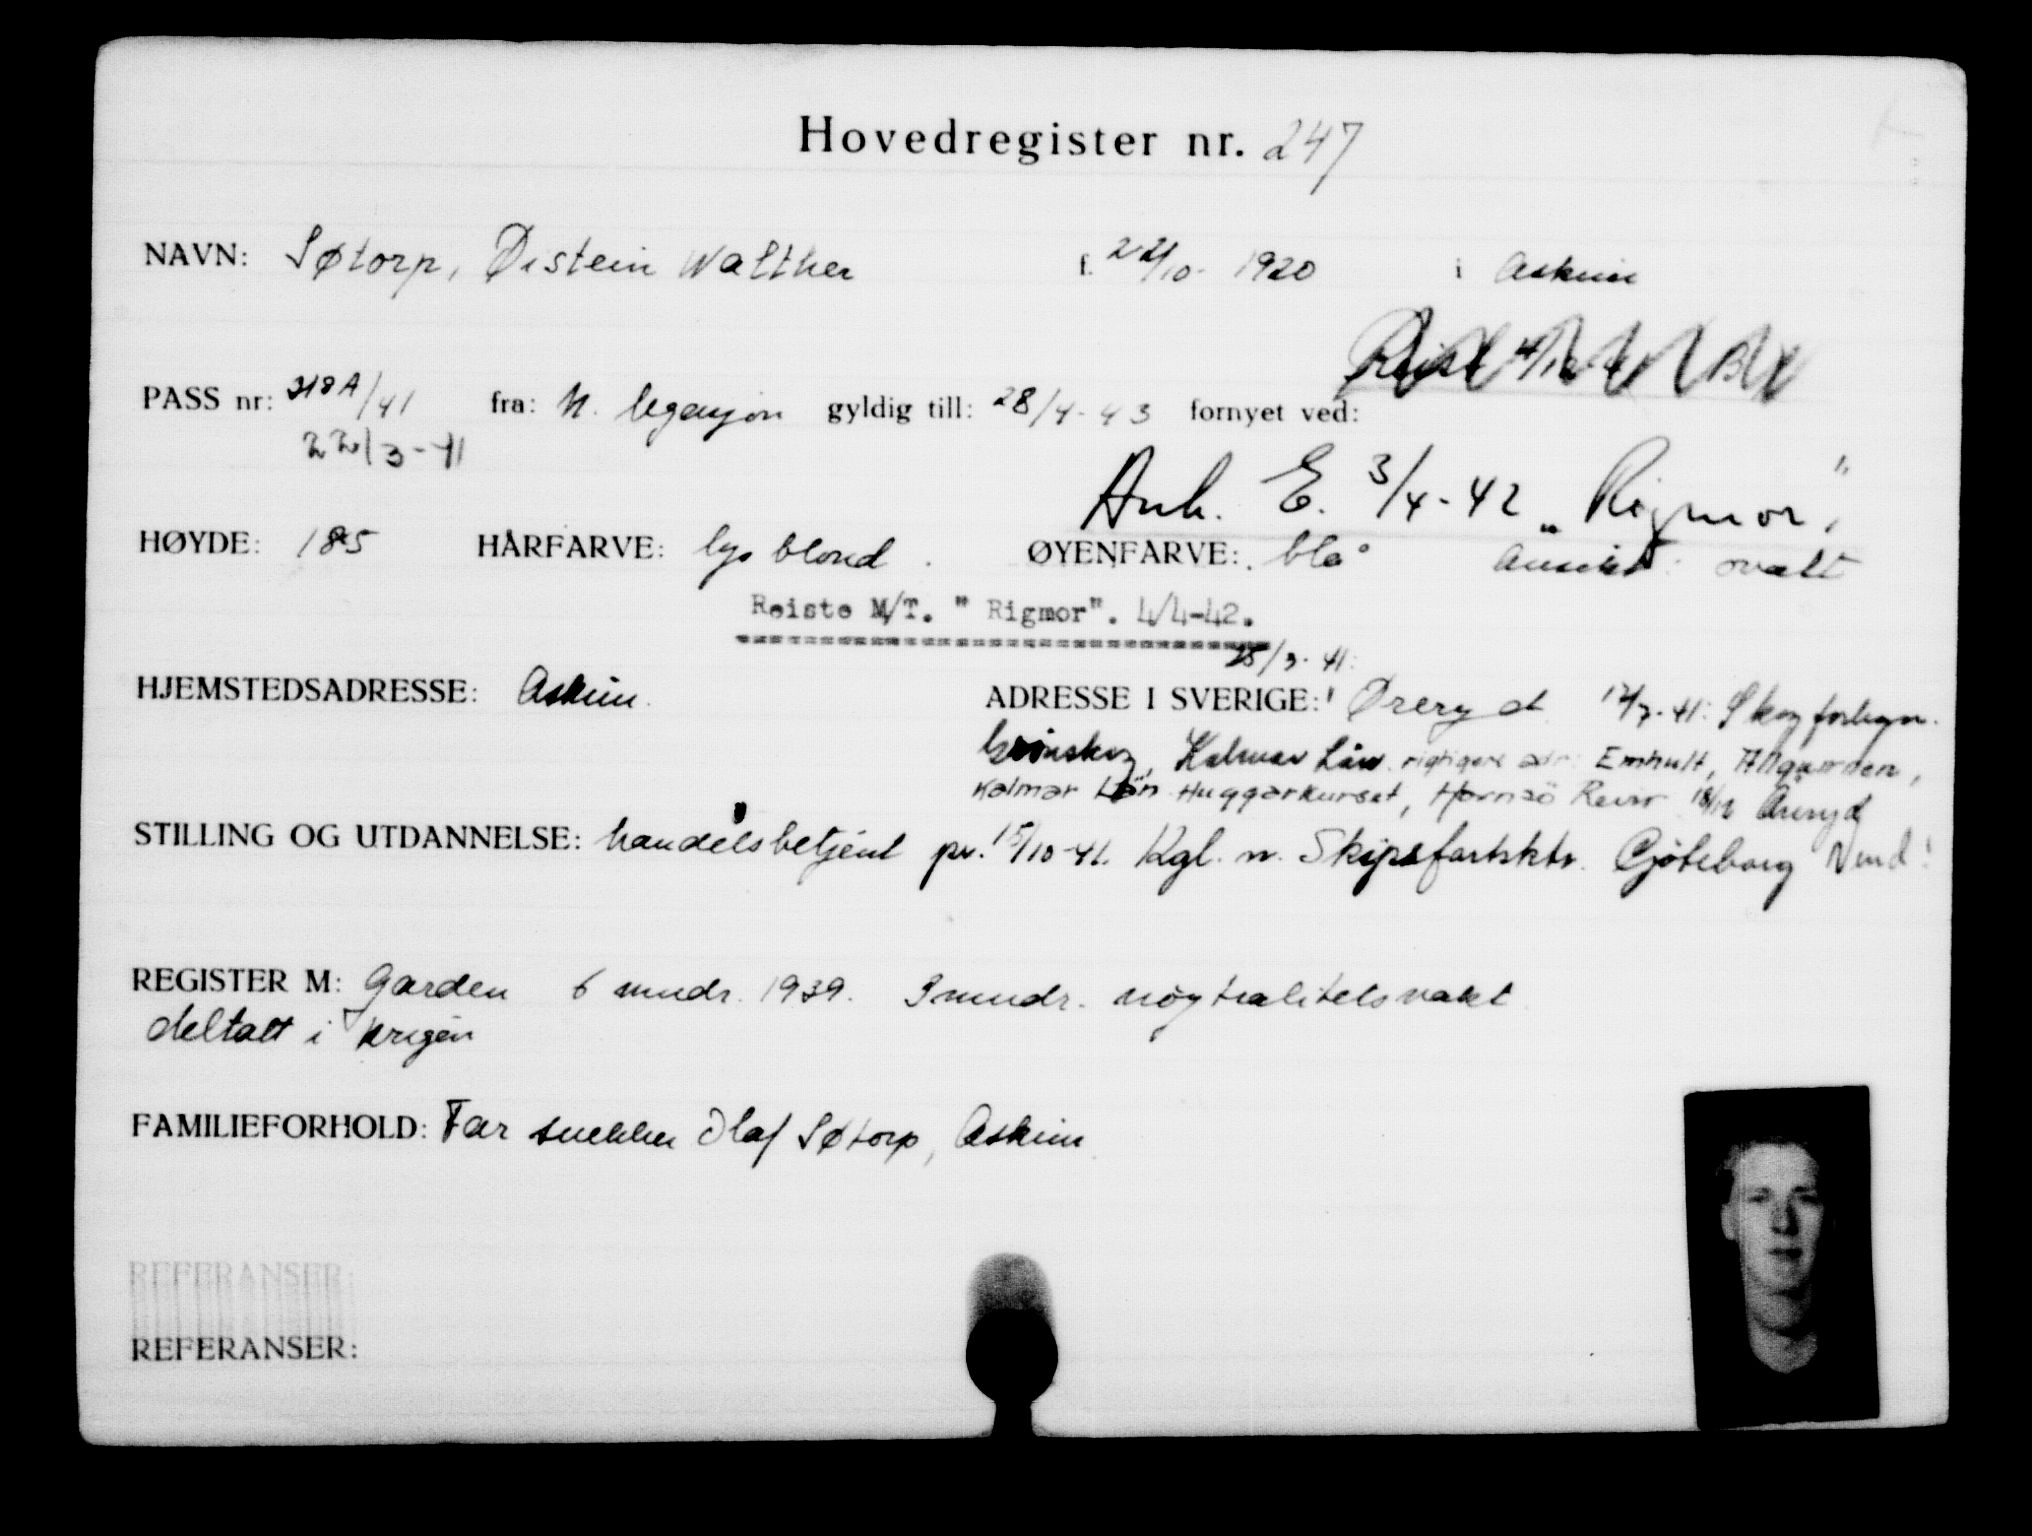 Hovedregister nr. 247
NAVN: Søtorp, Øistein Walther f. 22/10- 1920 i Askim
PASS nr: 318A/41 fra: N. legasjon gyldig till: 28/4-43 fornyet ved:
22/3-41
Ank. E. 3/4-42 „Rigmor"
HØYDE: 185 HÅRFARVE: lys blond. ØYENFARVE: blå Ansikt: ovalt
Reiste M/T. "Rigmor". 4/4-42.
25/3-41:
HJEMSTEDSADRESSE: Askim. ADRESSE I SVERIGE: Øreryd 12/7-41: Skogforlegn.
Kalmar Län. rigtigere adr: Emhult, Allgunnen,
Kalmar Län Huggarkurset, Hornsö Revir 18/12 Öreryd
STILLING OG UTDANNELSE: handelsbetjent pr. 15/10-41. Kgl. n. Skipsfartsktr. Gøteborg
REGISTER M: Garden 6 mndr. 1939. 3 mndr. nøytralitetsvakt
deltatt i krigen
FAMILIEFORHOLD: Far snekker Olaf Søtorp, Askim
REFERANSER:
REFERANSER: